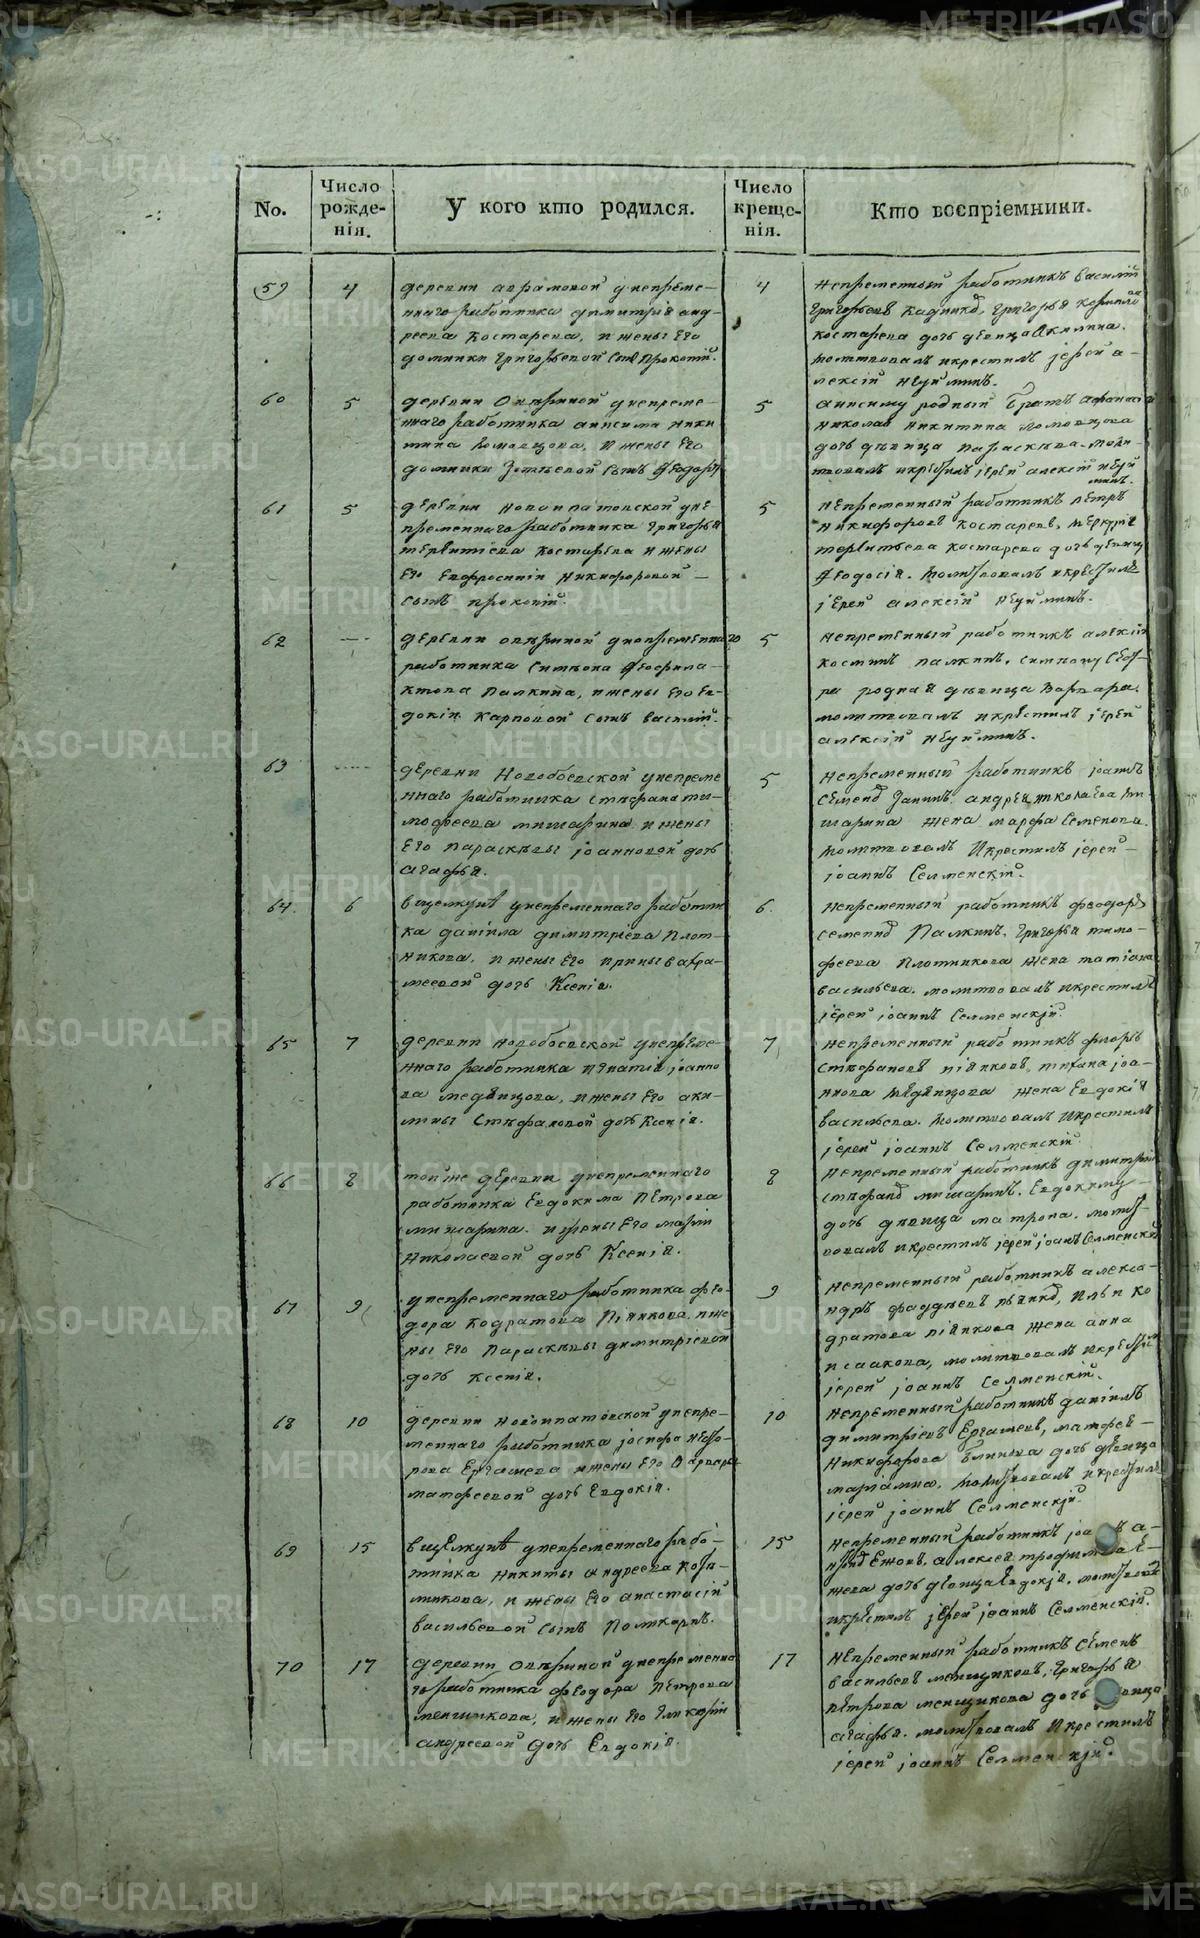 No.
Число рожде-нія.
У кого кто родился.
Число креще-нія.
Кто воспріемники.
59 4
деревни аврамовой унепреме-
ннаго работника димитрія анд-
реева Костарева, и жены Его
домники григорьевой Сынъ Прокопій.
4
Непременный работникъ василій
костарева дочь девица Акилина.
молитвовалъ и крестилъ іерей а-
лексій Неуйминъ.
60 5
деревни Овиріной унепреме-
ннаго работника анисима ники
тина и жены Его
домники Сынъ Феодоръ
5
анисиму родный братъ афанасій
николая никитина
дочь девица параскева. моли-
твовалъ и крестилъ іерей алексій неуй
минъ.
61 5
деревни новоипатовской уне-
пременнаго работника григорья
терентіева костарева и жены
Его Евфросиніи Никифоровой
сынъ прокопій.
5
Непременный работникъ петръ
никифоровъ костаревъ, меркурія
терентьева костарева дочь девица
Феодосія. молитвовалъ и крестилъ
іерей алексій Неуйминъ.
62
унепременнаго
работника Симеона Феофила-
ктова Палкина, и жены Его Ев-
докіи Карповой Сынъ василій.
5
Непременный работникъ алексій
костинъ палкинъ, симеону Сест-
ра родная девица варвара.
молитвовалъ и крестилъ іерей
алексій неуйминъ.
63
деревни Новобоевской унепреме
ннаго работника стефана ти-
мофеева мишарина и жены
Его параскевы іоанновой дочь
агафья.
5
Непременный работникъ іоаннъ
андрея николаева ми-
шарина жена марфа Семенова.
молитвовалъ И крестилъ іерей
іоаннъ Селменскій.
64. 6
вщелкунѣ унепременнаго работни
ка даніила димитріева Плот-
никова, и жены Его ирины вафра-
меевой дочь Ксенія.
6.
Непременный работникъ феодоръ
семеновъ Палкинъ. Григорья тимо-
феева Плотникова жена татіана
васильева. молитвовалъ и крестилъ
іерей іоаннъ Селменскій.
65 7
деревни новобоевской унепреме-
ннаго работника игнатія іоанно
ва медвицова, и жены Его аки-
лины Стефановой дочь Ксенія.
7
Непременный работникъ флоръ
стефановъ піянковъ, іоа-
ннова жена Евдокія
васильева. молитвовалъ И крестилъ
іерей іоаннъ Селменскій
66 8
тойже деревни унепременнаго
работника Евдокима Петрова
мишарина. и жены Его маріи
Николаевой дочь Ксенія.
8
Непременный работникъ димитрій
стефановъ мишаринъ. Евдокиму
дочь девица матрона. молит-
вовалъ и крестилъ іерей іоаннъ Селменскій
67 9
унепременнаго работника фео-
дора Кодратова Піянкова, и же
ны Его Параскевы димитріевой
дочь Ксенія.
9
Непременный работникъ алекса-
ндръ фаддеевъ Ильи Ко
дратова піянкова жена анна
исаакова, молитвовалъ и крестилъ
іерей іоаннъ Селменскій.
68 10
деревни новоипатовской унепре-
меннаго работника іосифа Недо-
рова Ергашева и жены Его Варвары
матфеевой дочь Евдокія.
10
Непременный работникъ даніилъ
димитріевъ Ергашевъ, матфея
Никифорова Блинова дочь девица
маріамна. молитвовалъ и крестилъ
іерей іоаннъ Селменскій.
69 15
вщелкунѣ унепременнаго рабо-
тника Никиты андреева
и жены Его анастасіи
васильевой Сынъ Поликарпъ.
15
Непременный работникъ
Ежовъ, алексея трофимова Е-
жева дочь девица Евдокія. молитвовалъ
и крестилъ іерей іоаннъ Селменскій.
70 17
деревни унепременна
го работника феодора Петрова
менщикова, и жены Его Гликеріи
андреевой дочь Евдокія.
17
Непременный работникъ Семенъ
васильевъ менщиковъ, григорья
петрова менщикова дочь девица
агафья. молитвовалъ И крестилъ
іерей іоаннъ Селменскій.
METRIKI.GASO-URAL.RU